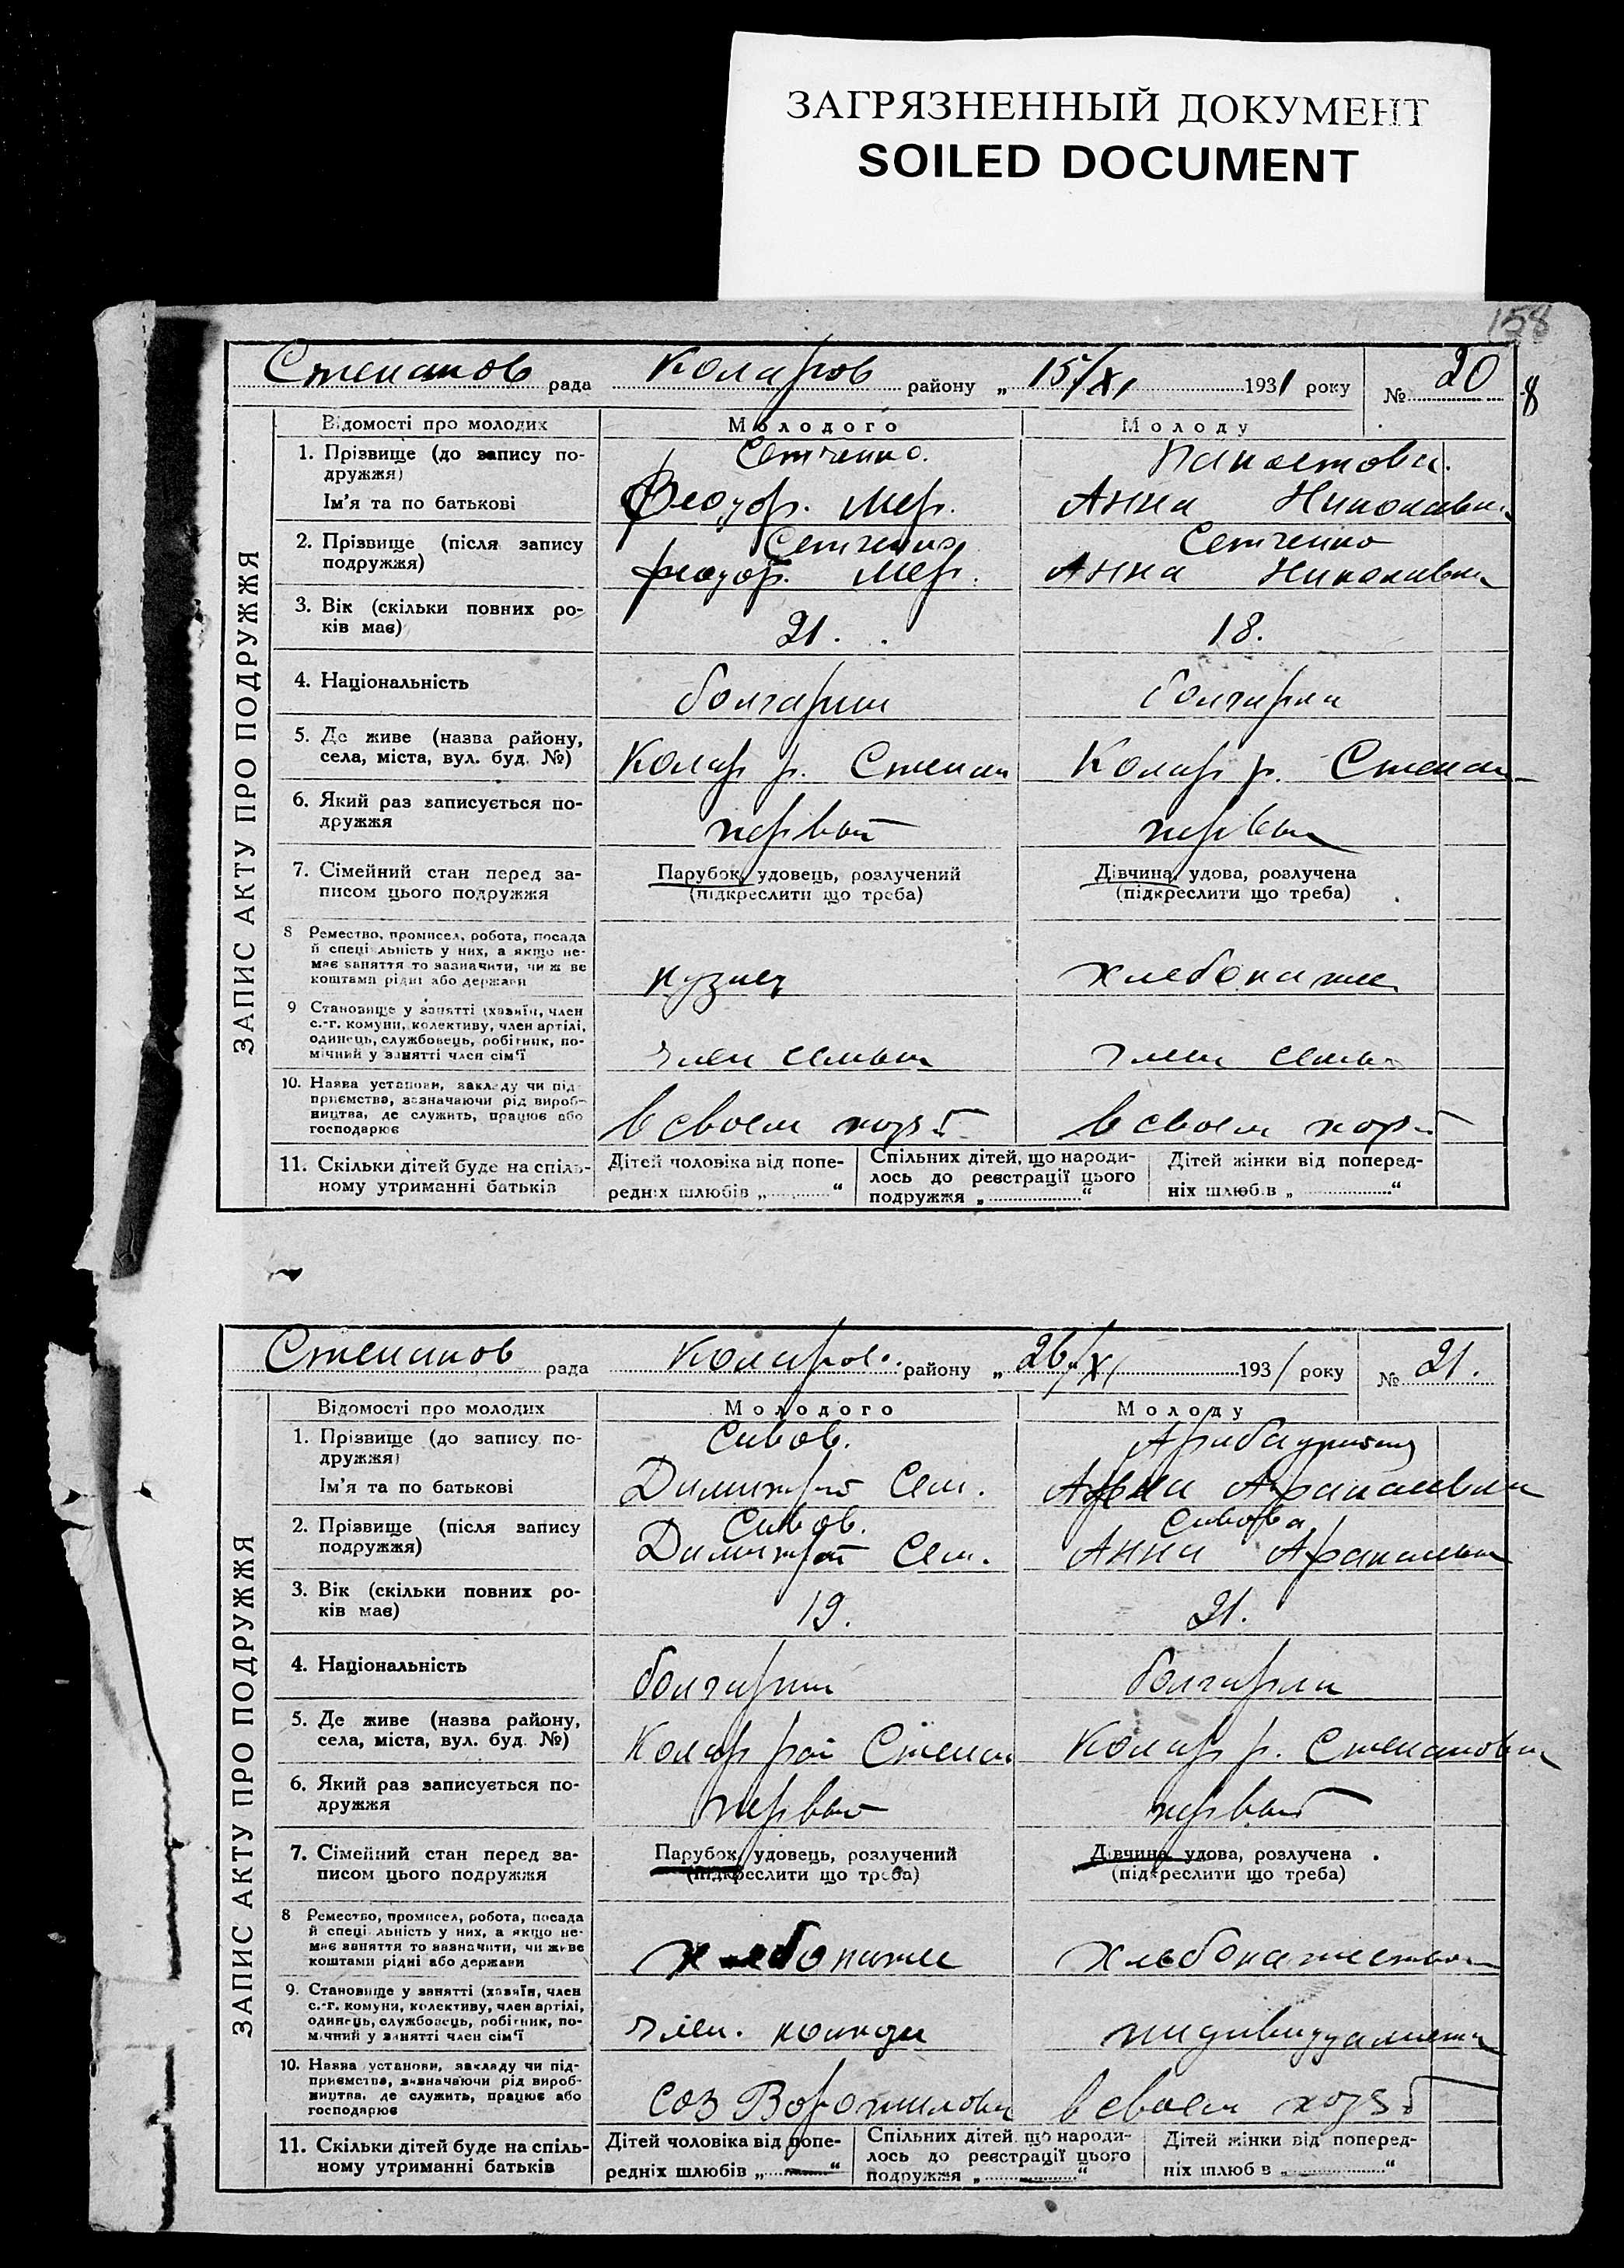 ЗАГРЯЗНЕННЫЙ ДОКУМЕНТ
SOILED DOCUMENT
158
Степанов рада Коларов району „ 15/XI 1931 року № 20
8
ЗАПИС АКТУ ПРО ПОДРУЖЖЯ
Відомості про молодих Молодого Молоду
1. Прізвище (до запису по-
дружжя)
Сетченко.
Ім'я та по батькові
Феодор. Мер. Анна Николавна
2. Прізвище (після запису
подружжя)
Сетченко Сетченко
Феодор. Мер. Анна Николавна
3. Вік (скільки повних ро-
ків має)
21. 18.
4. Національність
болгарин болгарка
5. Де живе (назва району,
села, міста, вул. буд. №)
Колар р. Степан Колар р. Степан
6. Який раз записується по-
дружжя
первый
7. Сімейний стан перед за-
писом цього подружжя
Парубок, удовець, розлучений
(підкреслити що треба)
Дівчина, удова, розлучена
(підкреслити що треба)
8 Ремество, промисел, робота, посада
й спеціальність у них, а якщо не-
має заняття то зазначити, чи живе
коштами рідні або держави
кузнец
9 Становище у занятті (хазяїн, член
с.-г. комуни, колективу, член артілі,
одинець, службовець, робітник, по-
мічний у занятті член сім'ї
член семьи член семьи
10. Назва установи, закладу чи під-
приємства, зазначаючи рід вироб-
ництва, де служить, працює або
господарює
в своем хоз. в своем хоз.
11. Скільки дітей буде на спіль-
ному утриманні батьків
Дітей чоловіка від попе-
редніх шлюбів „ “
Спільних дітей, що народи-
лось до реєстрації цього
подружжя „ “
Дітей жінки від поперед-
ніх шлюбів „ “
Степанов рада Коларов. району „ 26/XI 1931 року № 21.
ЗАПИС АКТУ ПРО ПОДРУЖЖЯ
Відомості про молодих Молодого Молоду
1. Прізвище (до запису по-
дружжя)
Сивов.
Ім'я та по батькові
Димитрий Сем. Анна
2. Прізвище (після запису
подружжя)
Сивов. Сивова
Димитрий Сем. Анна
3. Вік (скільки повних ро-
ків має)
19. 21.
4. Національність
болгарин болгарка
5. Де живе (назва району,
села, міста, вул. буд. №)
Колар рай Степан Колар р. Степановка
6. Який раз записується по-
дружжя
первый первый
7. Сімейний стан перед за-
писом цього подружжя
Парубок, удовець, розлучений
(підкреслити що треба)
Дівчина, удова, розлучена
(підкреслити що треба)
8 Ремество, промисел, робота, посада
й спеціальність у них, а якщо не-
має заняття то зазначити, чи живе
коштами рідні або держави
9. Становище у занятті (хазяїн, член
с.-г. комуни, колективу, член артілі,
одинець, службовець, робітник, по-
мічний у занятті член сім'ї
член.
10. Назва установи, закладу чи під-
приємства, зазначаючи рід вироб-
ництва, де служить, працює або
господарює
соз Ворошилова в своем хоз.
11. Скільки дітей буде на спіль-
ному утриманні батьків
Дітей чоловіка від попе-
редніх шлюбів „ “
Спільних дітей, що народи-
лось до реєстрації цього
подружжя „ “
Дітей жінки від поперед-
ніх шлюбів „ “